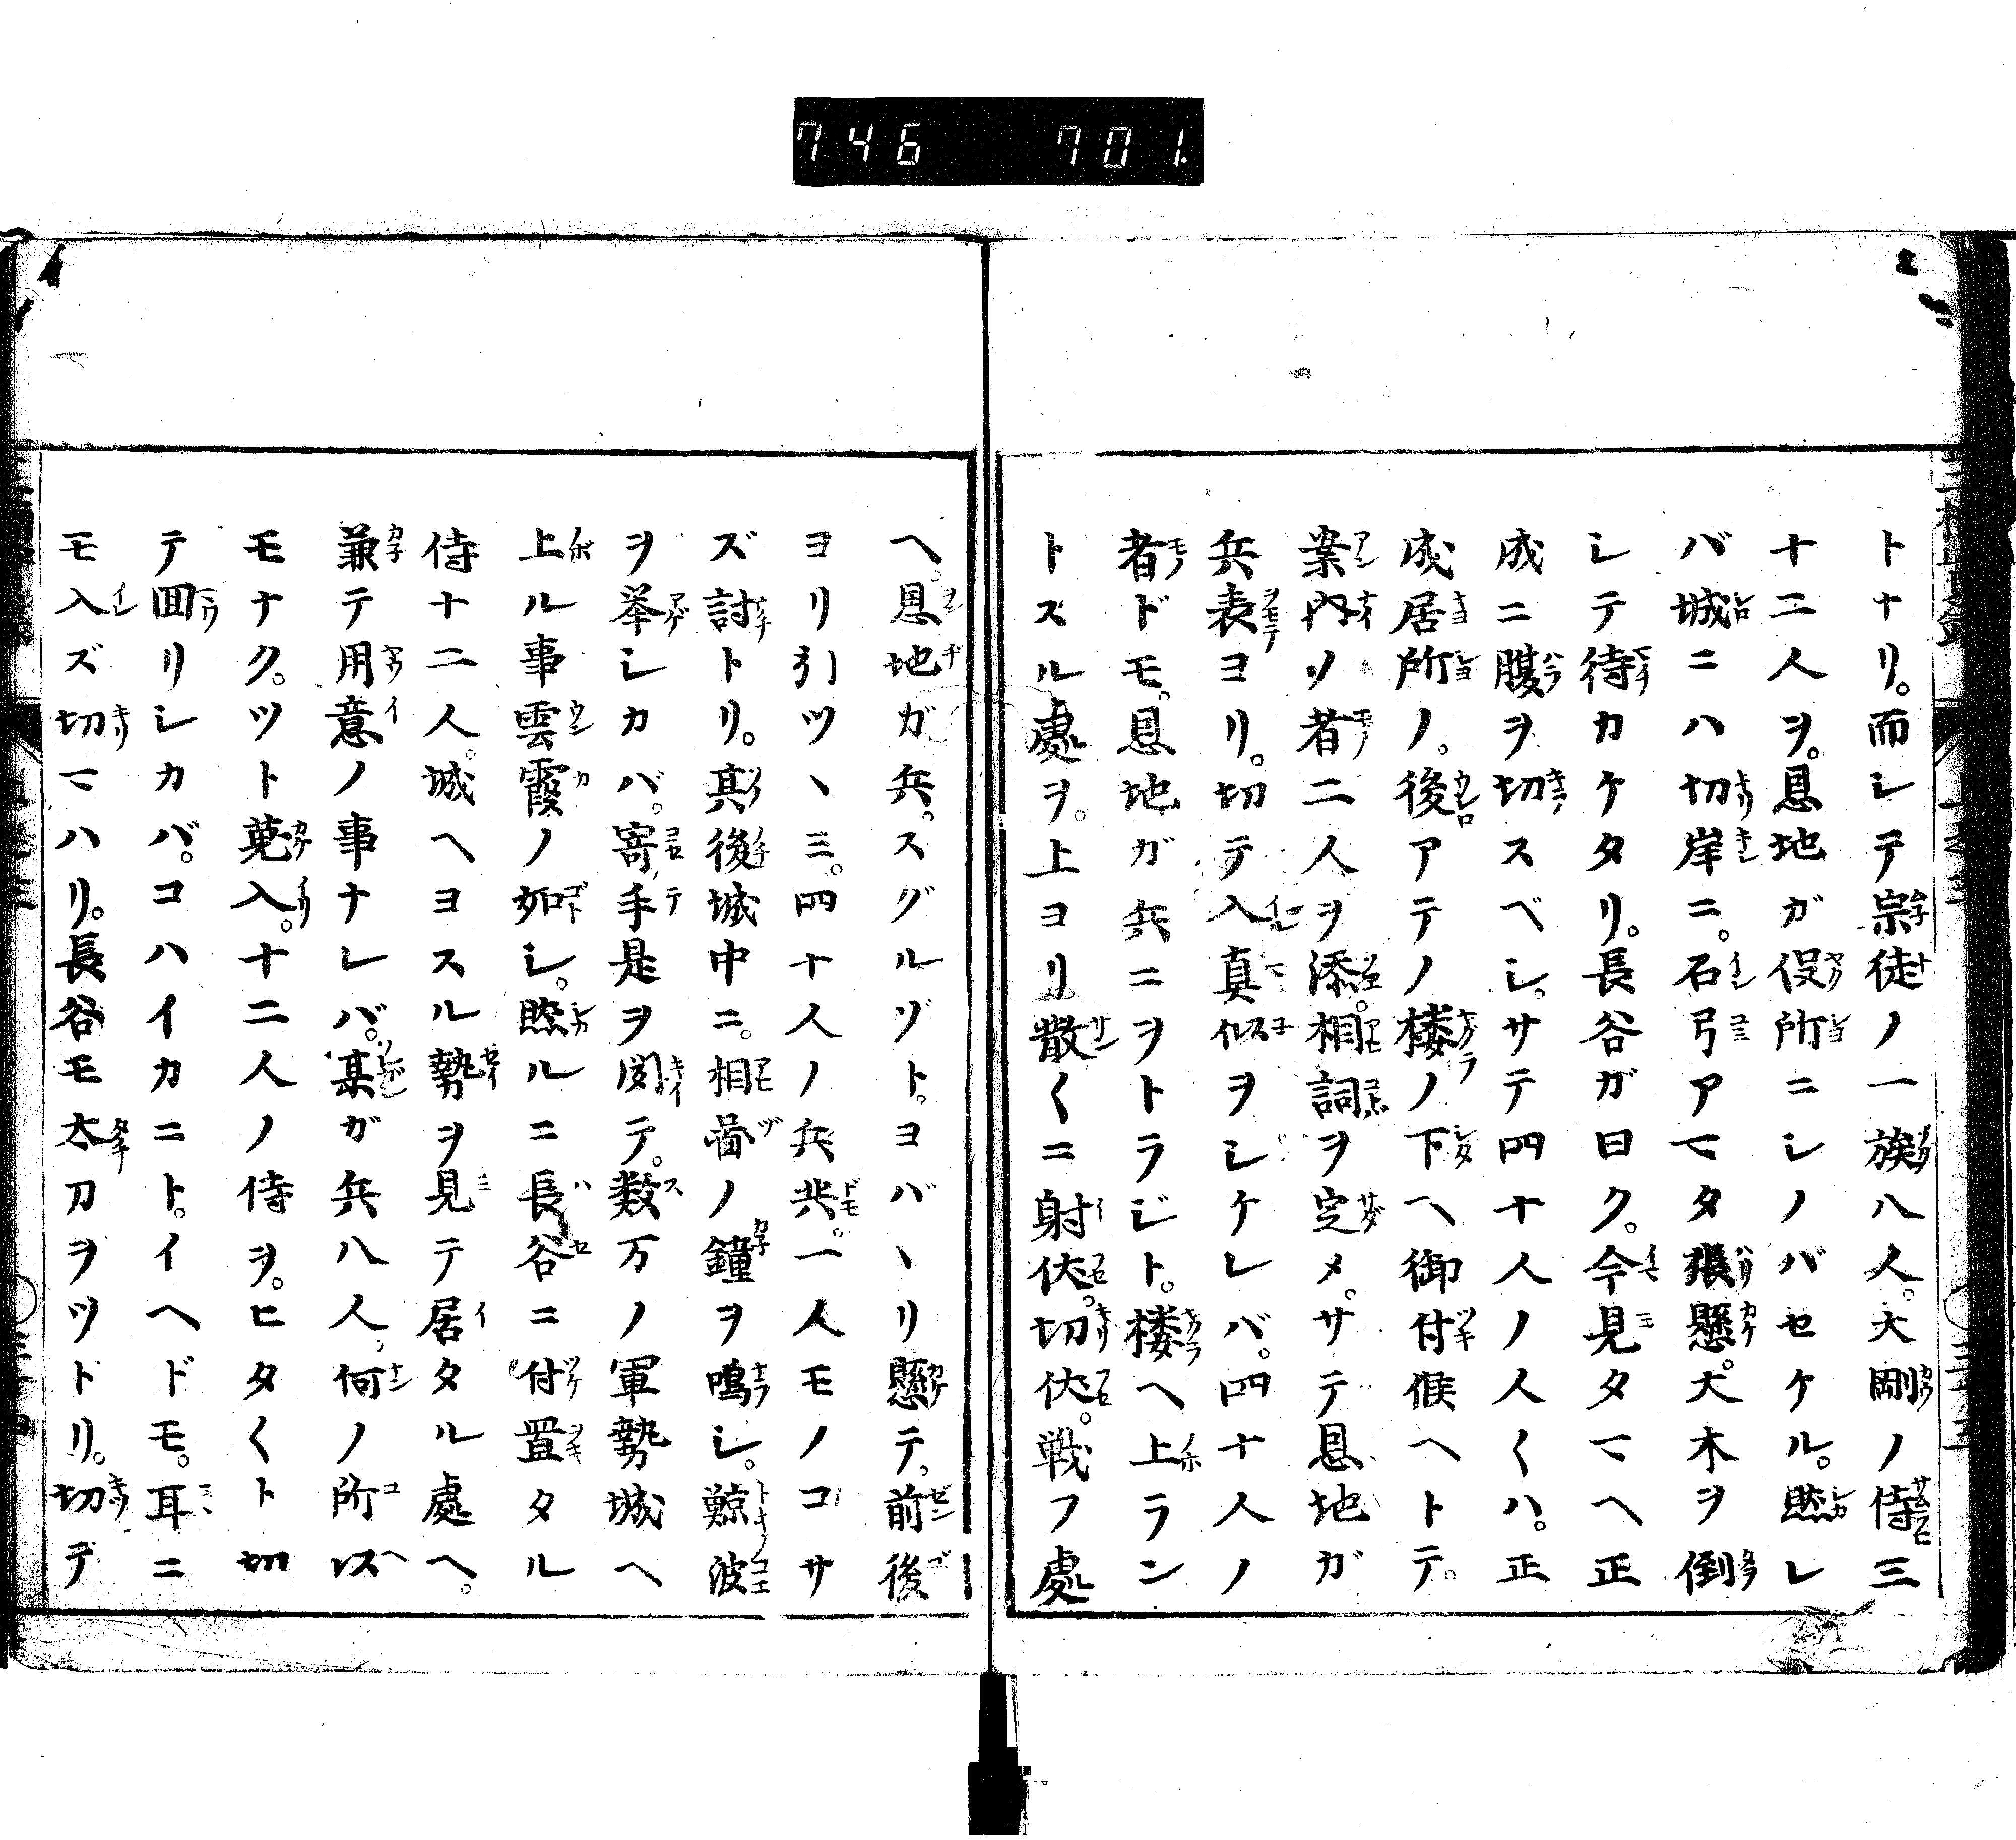 746 701
トナリ。而シテ宗徒ノ一族八人。大剛ノ侍三
十二人ヲ。恩地ガ役所ニシノバセケル。然レ
バ城ニハ切岸ニ。石弓アマタ張懸。大木ヲ倒
シテ待カケタリ。長谷ガ曰ク。今見タマヘ正
成ニ腹ヲ切スベシ。サテ四十人ノ人〱ハ。正
成居所ノ。後アテノ楼ノ下ヘ御付候ヘトテ。
案内ソ者二人ヲ添。相詞ヲ定メ。サテ恩地ガ
兵表ヨリ。切テ入真似ヲシケレバ。四十人ノ
者ドモ。恩地ガ兵ニヲトラジト。楼ヘ上ラン
トズル處ヲ。上ヨリ散〱ニ射伏。切伏。戦フ處
ヘ。恩地ガ兵。スグルヅト。ヨバヽリ懸テ。前後
ヨリ引ツヽミ。四十人ノ兵共。一人モノコサ
ズ討トリ。其後城中ニ。相啚ノ鐘ヲ鳴シ。鯨波
ヲ挙シカバ。寄手是ヲ聞テ。数万ノ軍勢城ヘ
上ル事雲霞ノ如シ。然ルニ長谷ニ付置タル
侍十二人。城ヘヨスル勢ヲ見テ居タル處ヘ。
兼テ用意ノ事ナレバ。某ガ兵八人。何ノ所ヘ
モナク。ツト蒐入。十二人ノ侍ヲ。ヒタ〱ト切
テ囬リシカバ。コハイカニト。イヘドモ。耳ニ
モ入ズ切マハリ。長谷モ太刀ヲツトリ。切テ